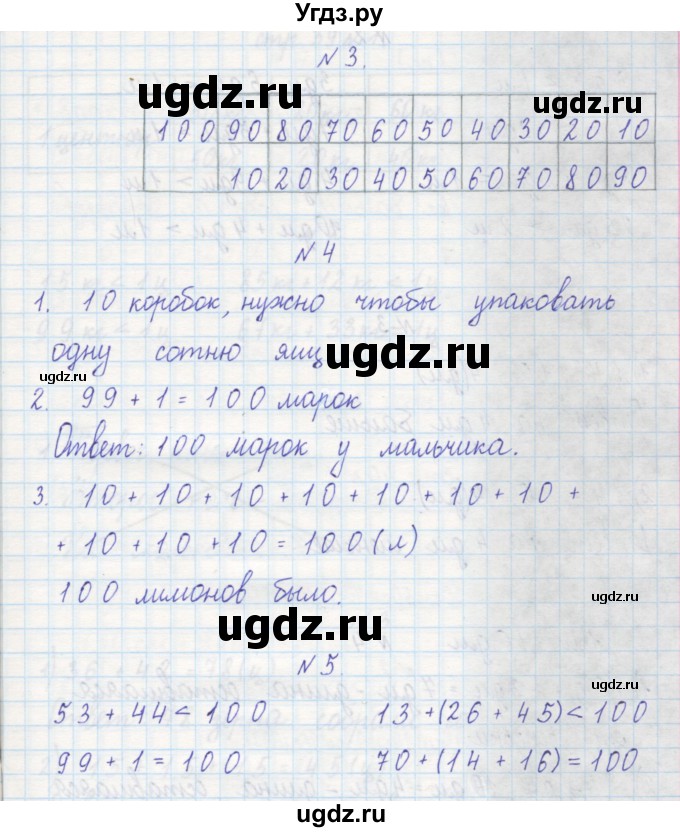 Угдз.ру
N 3.
ugdz.ru ugdz.ru
ugdz.ru
100 90 80 70 60 50 40 30 20 10
10 20 30 40 50 60 70 80 90
N 4
ugdz.ru
1. 10 коробок, нужно чтобы упаковать
одну сотню яиц
ugdz.ru
ugdz.ru
2. 99 + 1 = 100 марок
Ответ: 100 марок у мальчика.
3. 10 + 10 + 10 + 10 + 10 + 10 + 10 +
+ 10 + 10 + 10 = 100 (л)
100 лимонов было.
ugdz.ru
ugdz.ru
N 5
ugdz.ru
53 + 44 < 100 13 + (26 + 45) < 100
99 + 1 = 100 70 + (14 + 16) = 100
ugdz.ru ugdz.ru